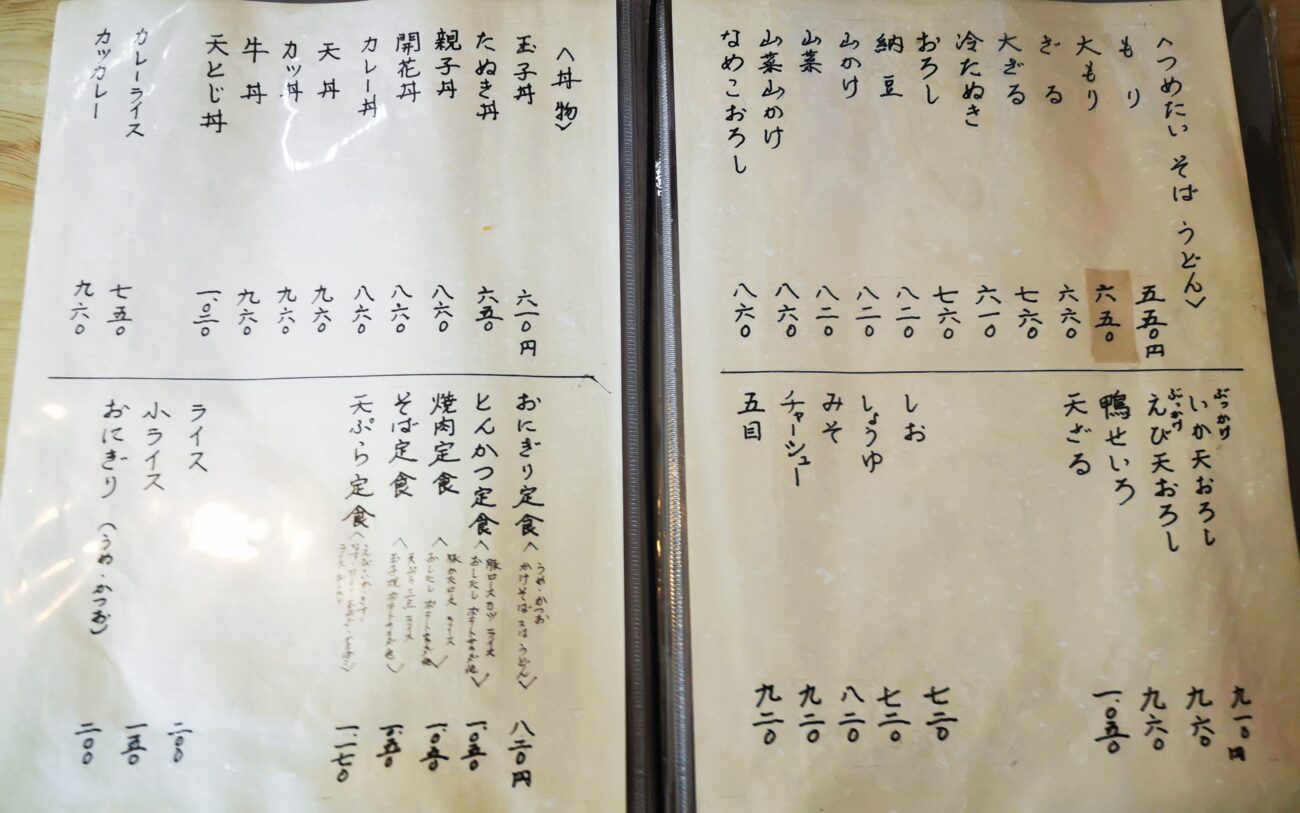 〈つめたい そば うどん〉
もり 五五〇円
大もり 六五〇
ざる 六六〇
大ざる 七六〇
冷たぬき 六一〇
おろし 七六〇
納豆 八二〇
山かけ 八二〇
山菜 八二〇
山菜山かけ 八六〇
なめこおろし 八六〇
ぶっかけ
いか天おろし 九一〇円
ぶっかけ
えび天おろし 九六〇
鴨せいろ 九六〇
天ざる 一、〇五〇
しお 七二〇
しょうゆ 七二〇
みそ 八二〇
チャーシュー 九二〇
五目 九二〇
〈丼物〉
玉子丼 六一〇円
たぬき丼 六五〇
親子丼 八六〇
開花丼 八六〇
カレー丼 八六〇
天丼 九六〇
カツ丼 九六〇
牛丼 九六〇
天とじ丼 一、〇二〇
カレーライス 七五〇
カツカレー 九六〇
おにぎり定食〈うめ・かつお
かけそば 又は うどん〉 八二〇円
とんかつ定食 一、〇五〇
焼肉定食 一、〇五〇
そば定食 一、〇五〇
天ぷら定食 一、一七〇
ライス 二〇〇
小ライス 一五〇
おにぎり(うめ・かつお) 二〇〇